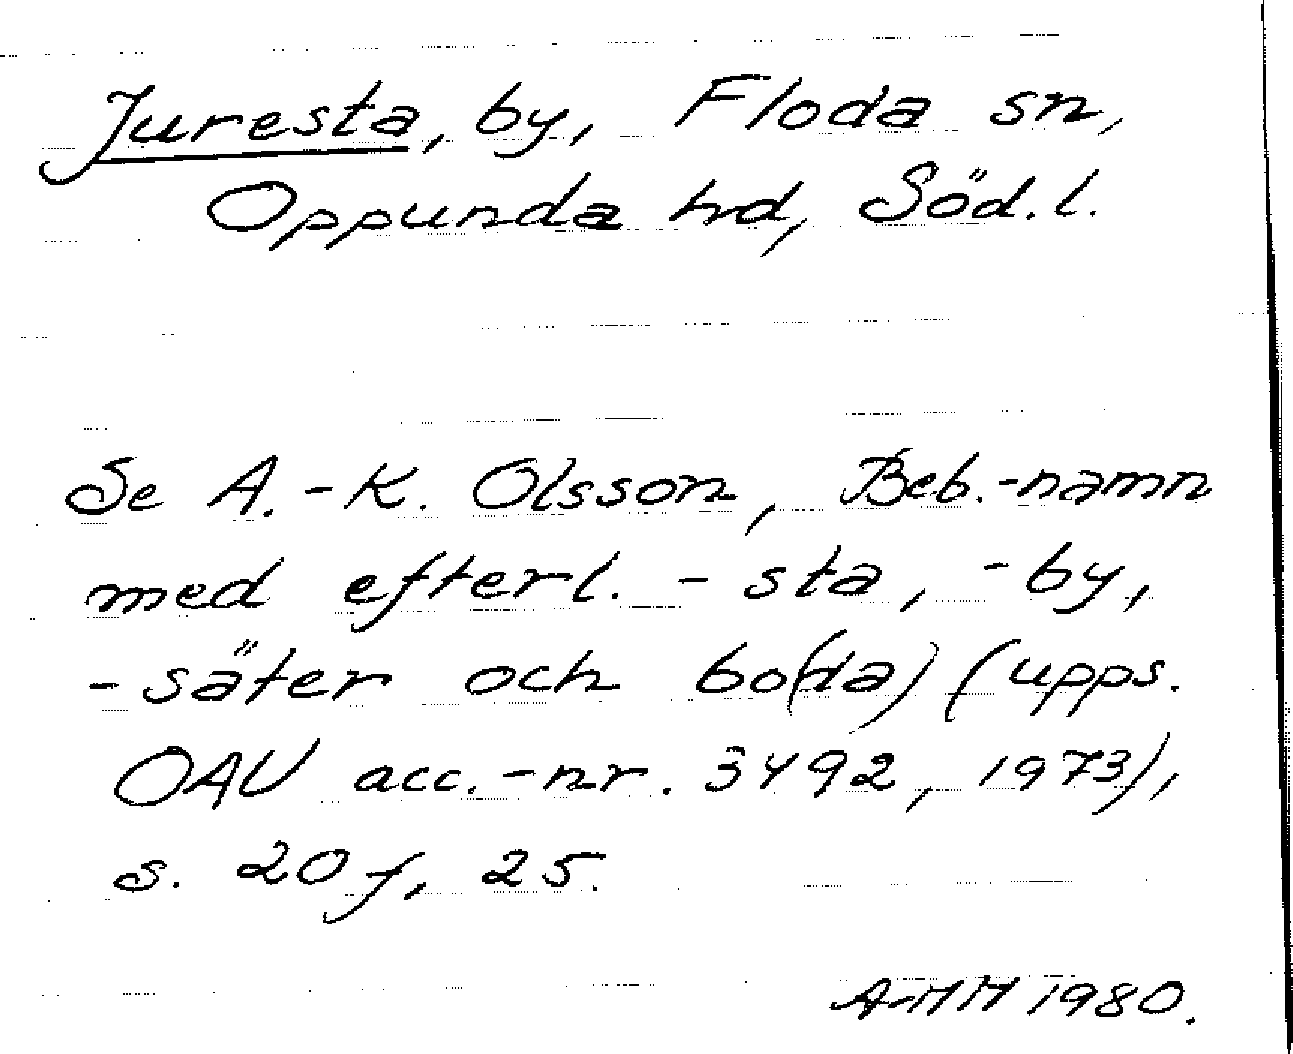 Juresta, by, Floda sn,
Oppunda hd, Söd.l.
Se A.-K. Olsson, Beb.-namn
med efterl. -sta, -by,
-säter och bo(da) (upps.
OAU acc.-nr. 3492, 1973),
s. 20 f, 25.
A-MH 1980.